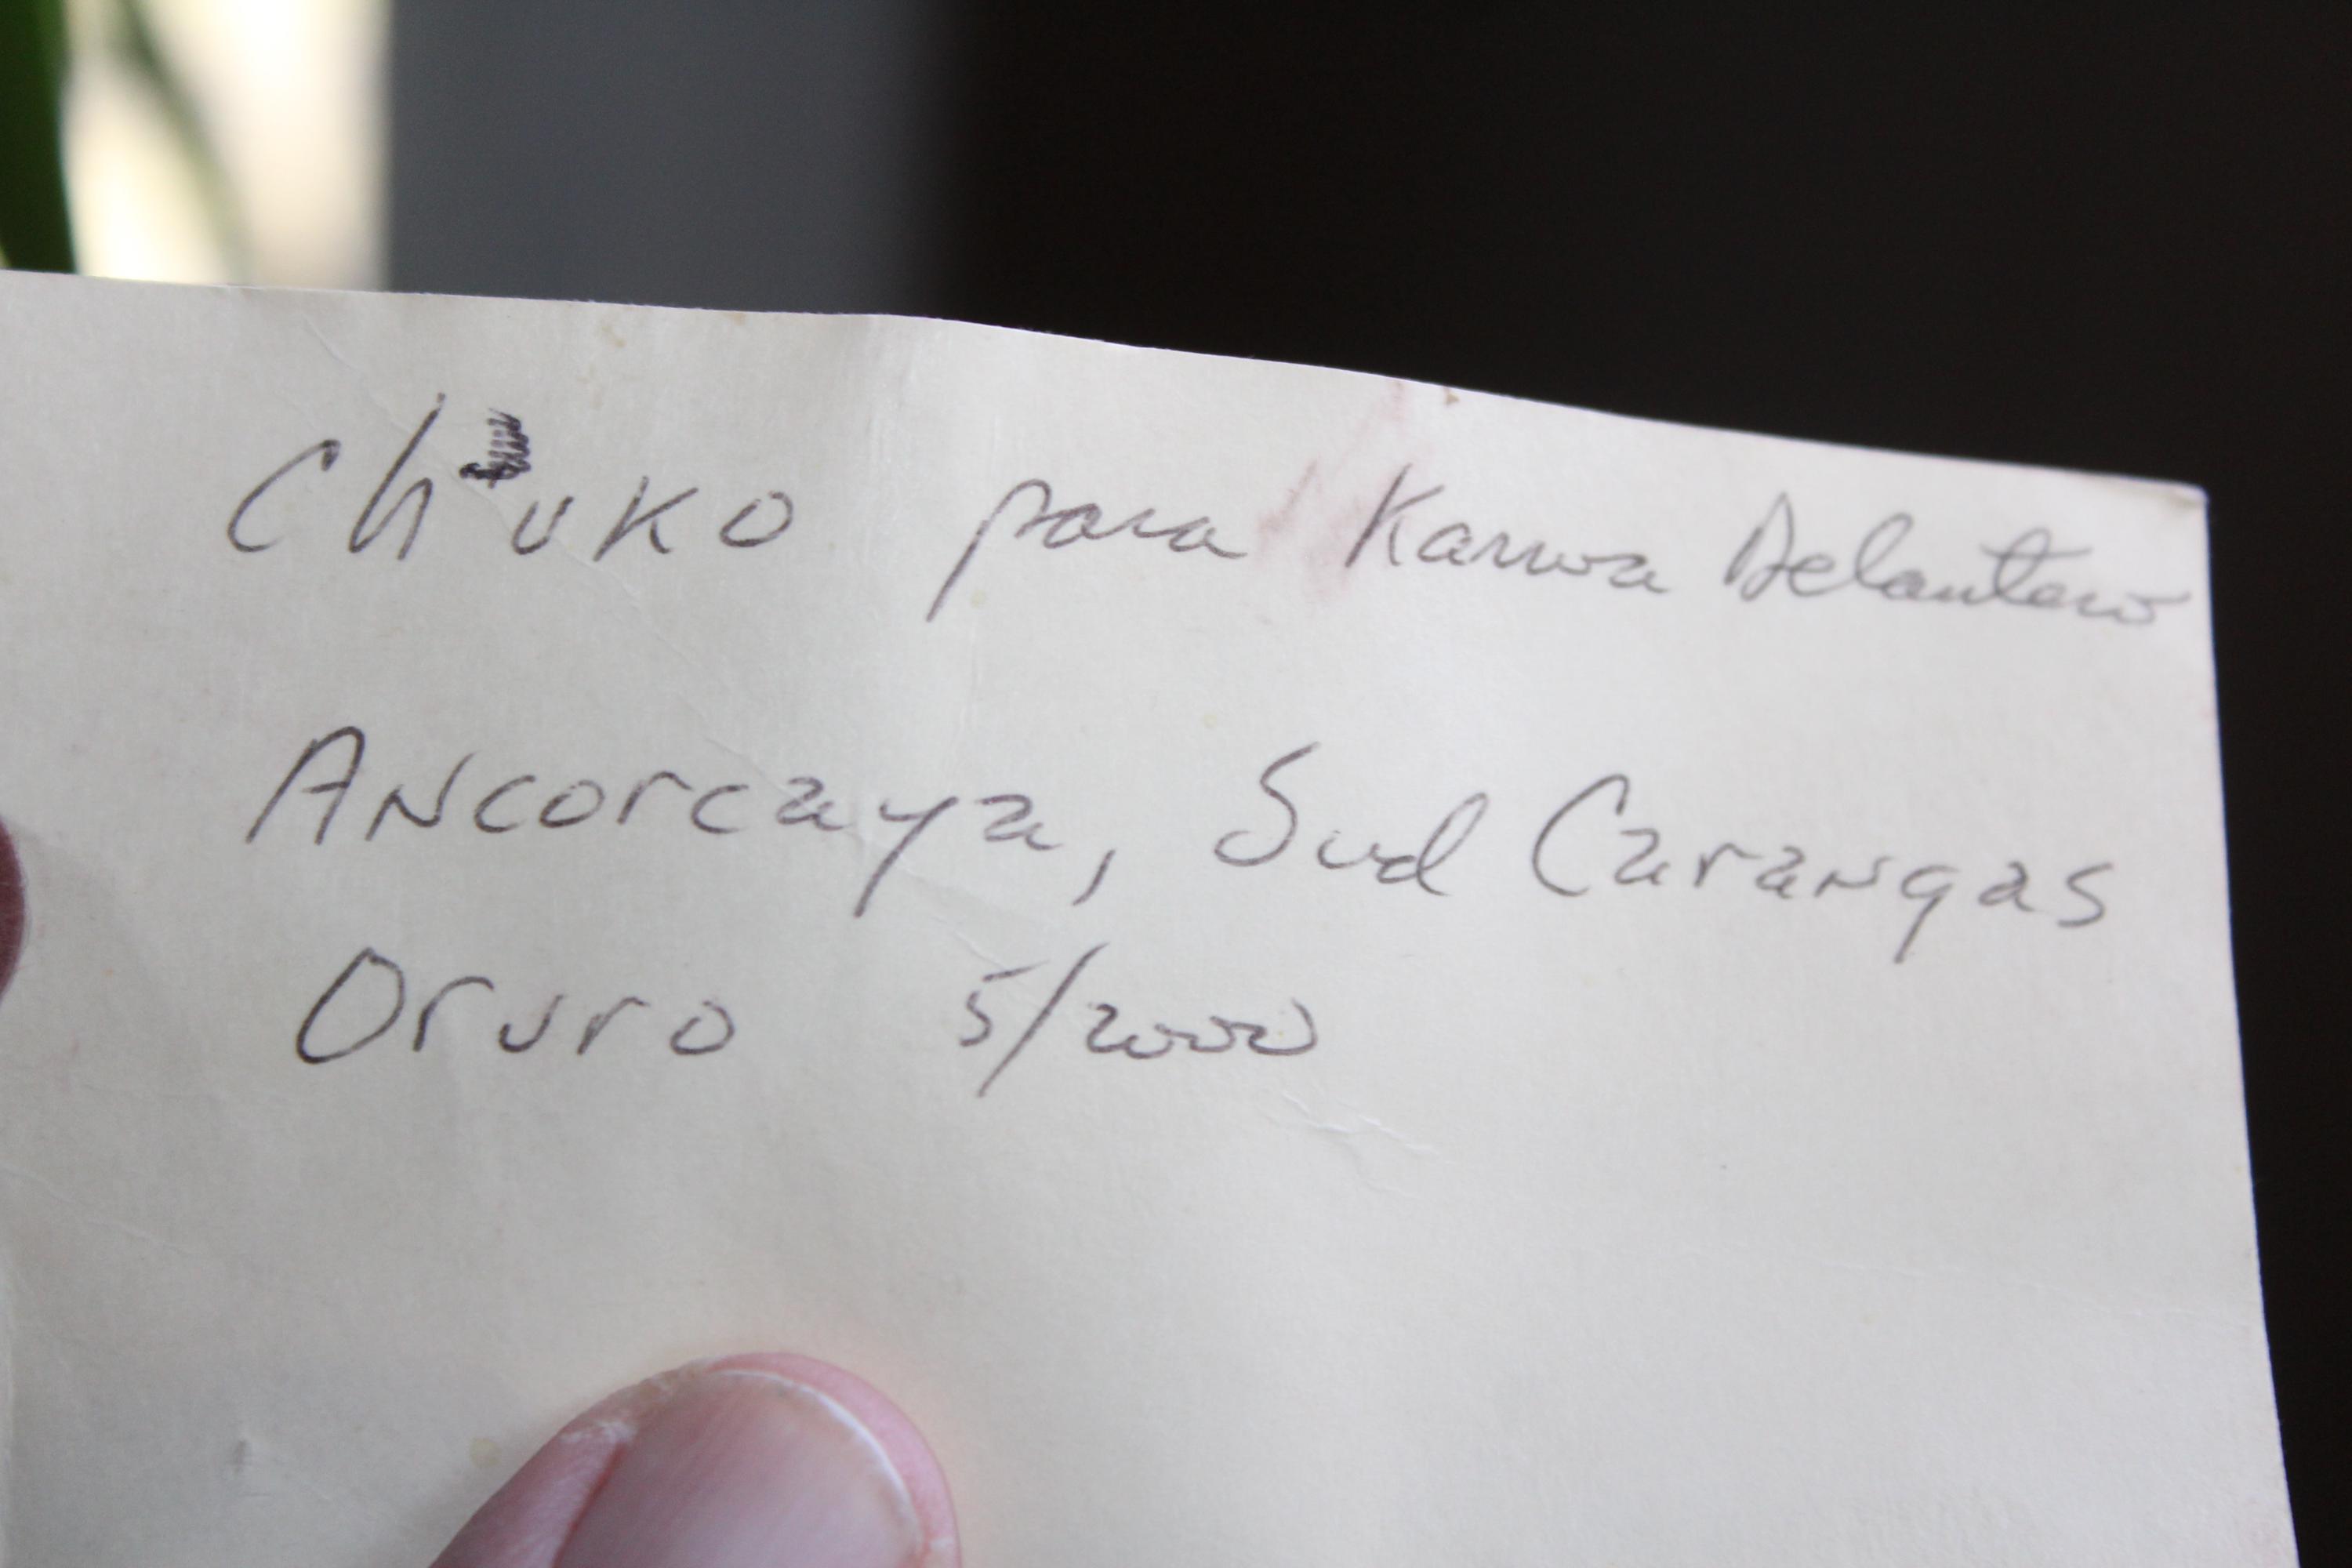 Ch'uko para Karwa Delantero
Ancorcaya, Sud Carangas
Oruro 5/2000